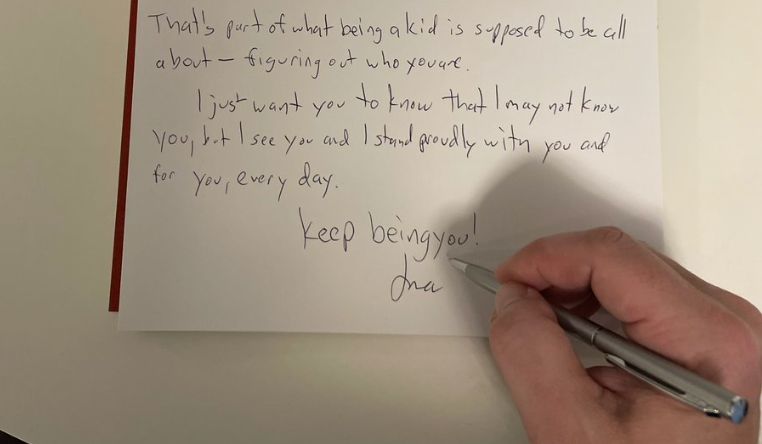 That's part of what being a kid is supposed to be all
about — figuring out who you are.
I just want you to know that I may not know
you, but I see you and I stand proudly with you and
for you, every day.
Keep being you!